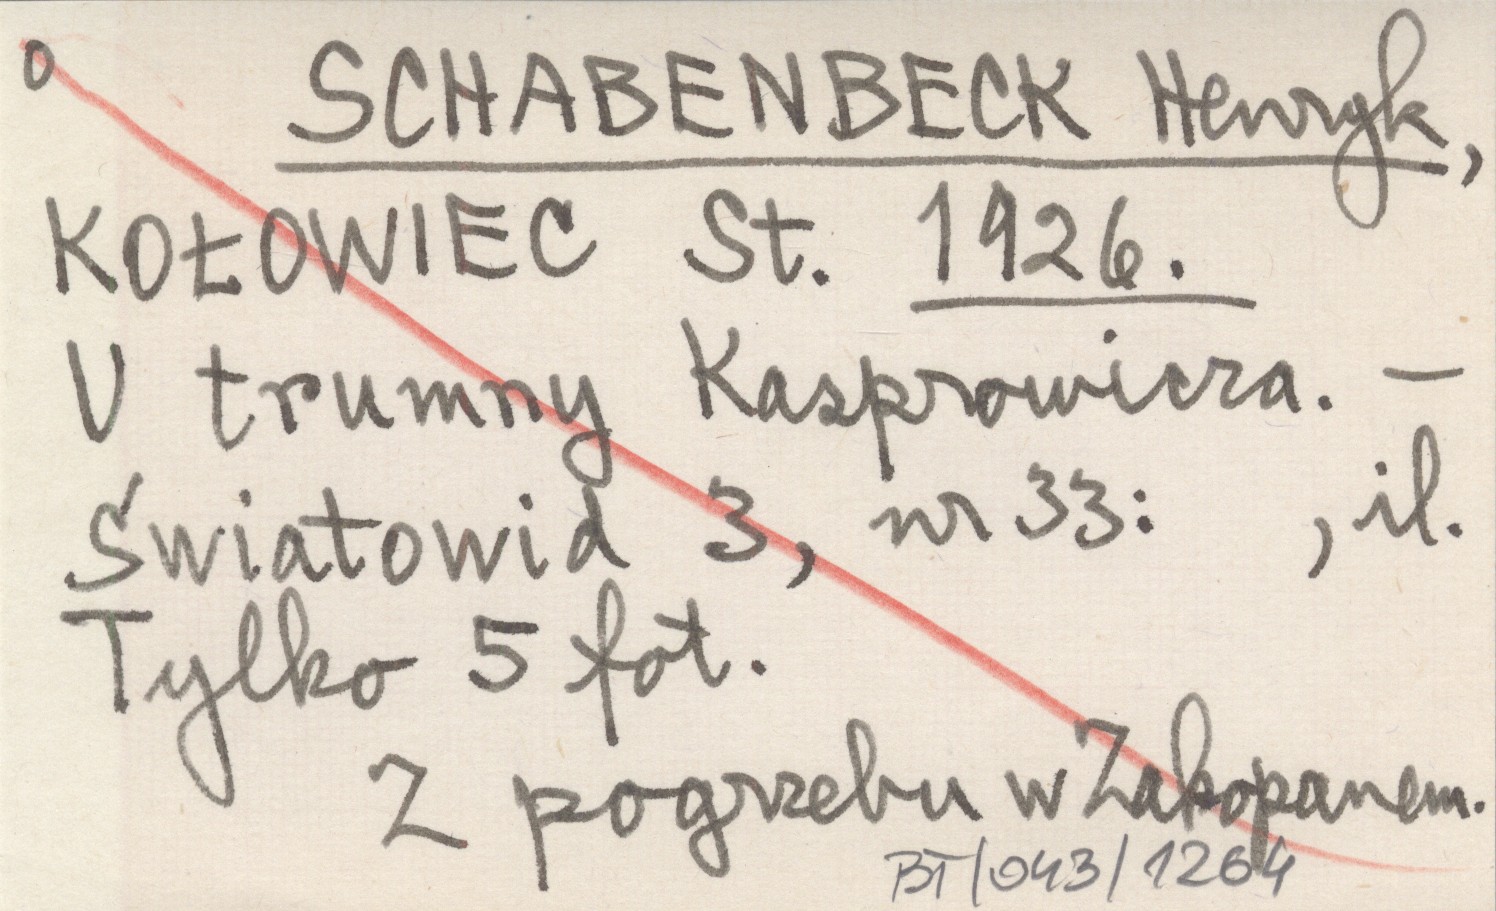 o SCHABENBECK Henryk,
KOŁOWIEC St. 1926.
U trumny Kasprowicza. –
Światowid 3, nr 33: , il.
Tylko 5 fot.
Z pogrzebu w Zakopanem.
BT/043/1264